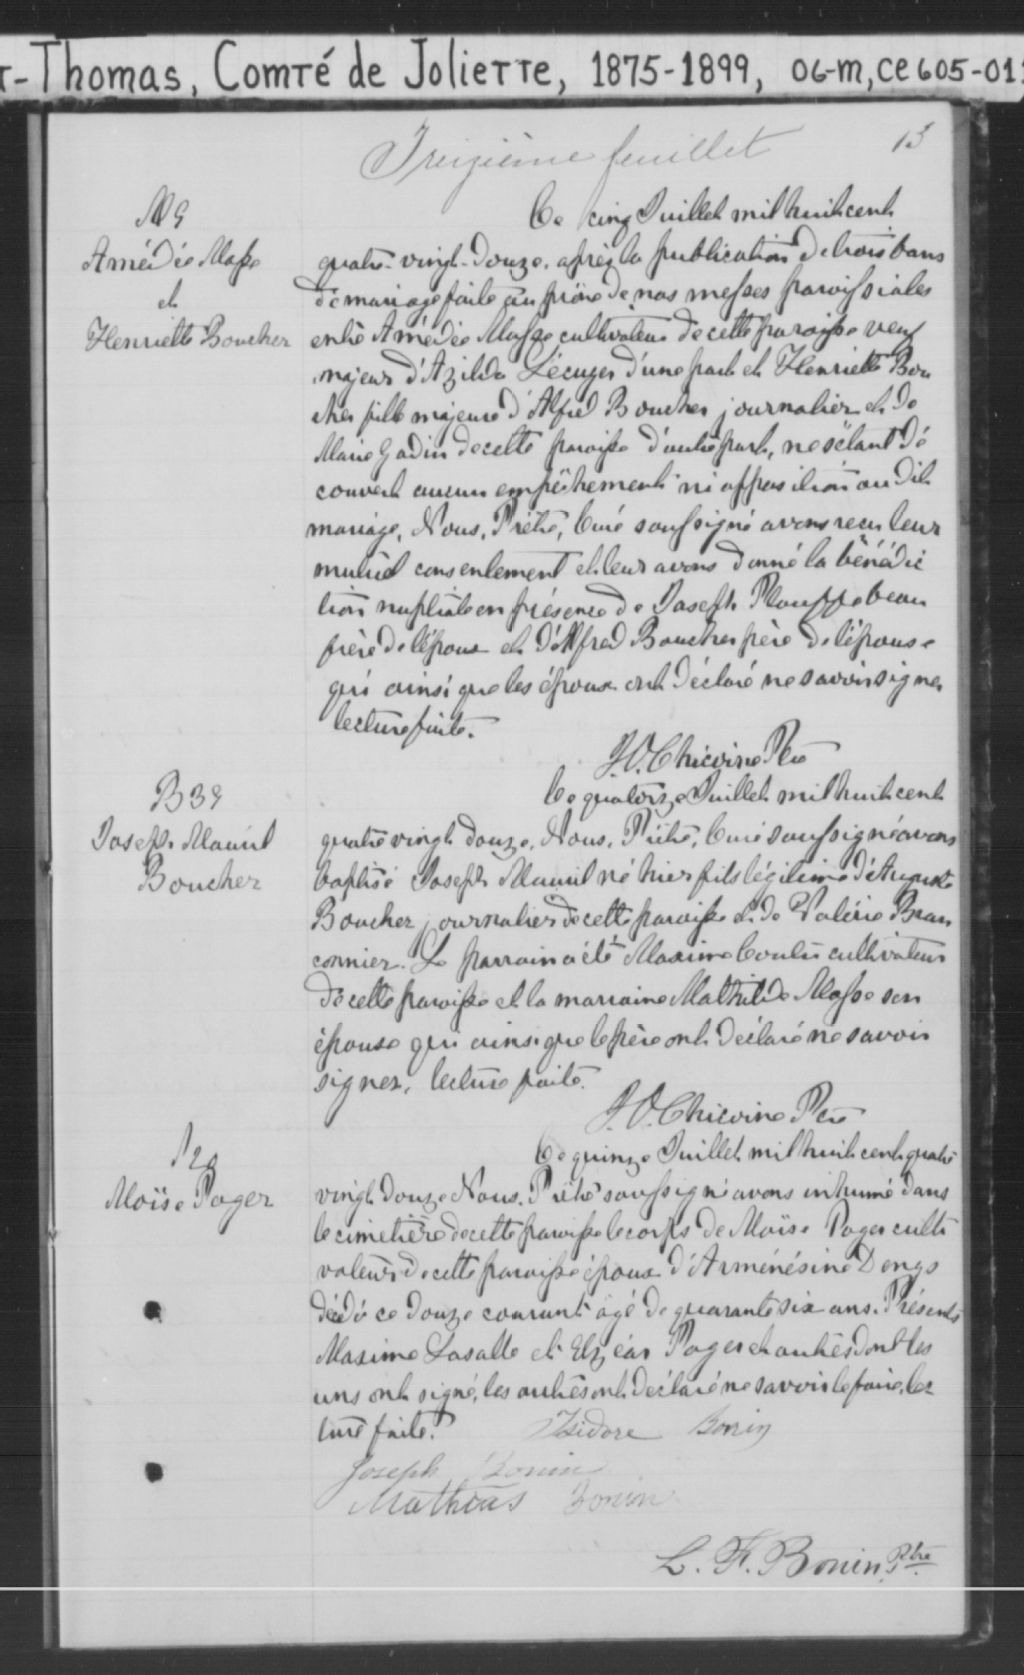 -Thomas, Comté de Joliette, 1875-1899, 06-M, CE605-01
Treizième feuillet
13
M 9
Amédée Masse
et
Henriette Boucher
Ce cinq Juillet mil huit cent
quatre-vingt-douze, après la publication de trois bans
de mariage faite au prône de nos messes paroissiales
entre Amédée Masse cultivateur de cette paroisse veuf
majeur d'Azilda Lécuyer d'une part et Henriette Bou
cher fille majeure d'Alfred Boucher journalier et de
Marie Gadin de cette paroisse d'autre part, ne s'étant dé
couvert aucun empêchement ni opposition au dit
mariage, Nous, Prêtre, Curé soussigné avons reçu leur
mutuel consentement et leur avons donné la bénédic
tion nuptiale en présence de Joseph Plouffe beau
frère de l'époux et d'Alfred Boucher père de l'épouse
qui ainsi que les époux ont déclaré ne savoir signer
lecture faite.
Ptre
B 39
Joseph Mauril
Boucher
Ce quatorze Juillet mil huit cent
quatre vingt douze, Nous, Prêtre, Curé soussigné avons
baptisé Joseph Mauril né hier fils légitime d'Auguste
Boucher journalier de cette paroisse et de Valérie Brau
connier. Le parrain a été Maxime Coutu cultivateur
de cette paroisse et la marraine Mathilde Masse son
épouse qui ainsi que le père ont déclaré ne savoir
signer, lecture faite.
Ptre
Moïse Payer
Ce quinze Juillet mil huit cent quatre
vingt douze Nous, Prêtre soussigné avons inhumé dans
le cimetière de cette paroisse le corps de Moïse Payer culti
vateur de cette paroisse époux d'Arménésine
décédé ce douze courant âgé de quarante six ans. Présents
Maxime Lasalle et Elzéar Payer et autres dont les
uns ont signé, les autres ont déclaré ne savoir le faire, lec
ture faite.
Isidore Bonin
Joseph Bonin
Mathias Bonin
L. F. Bonin Ptre